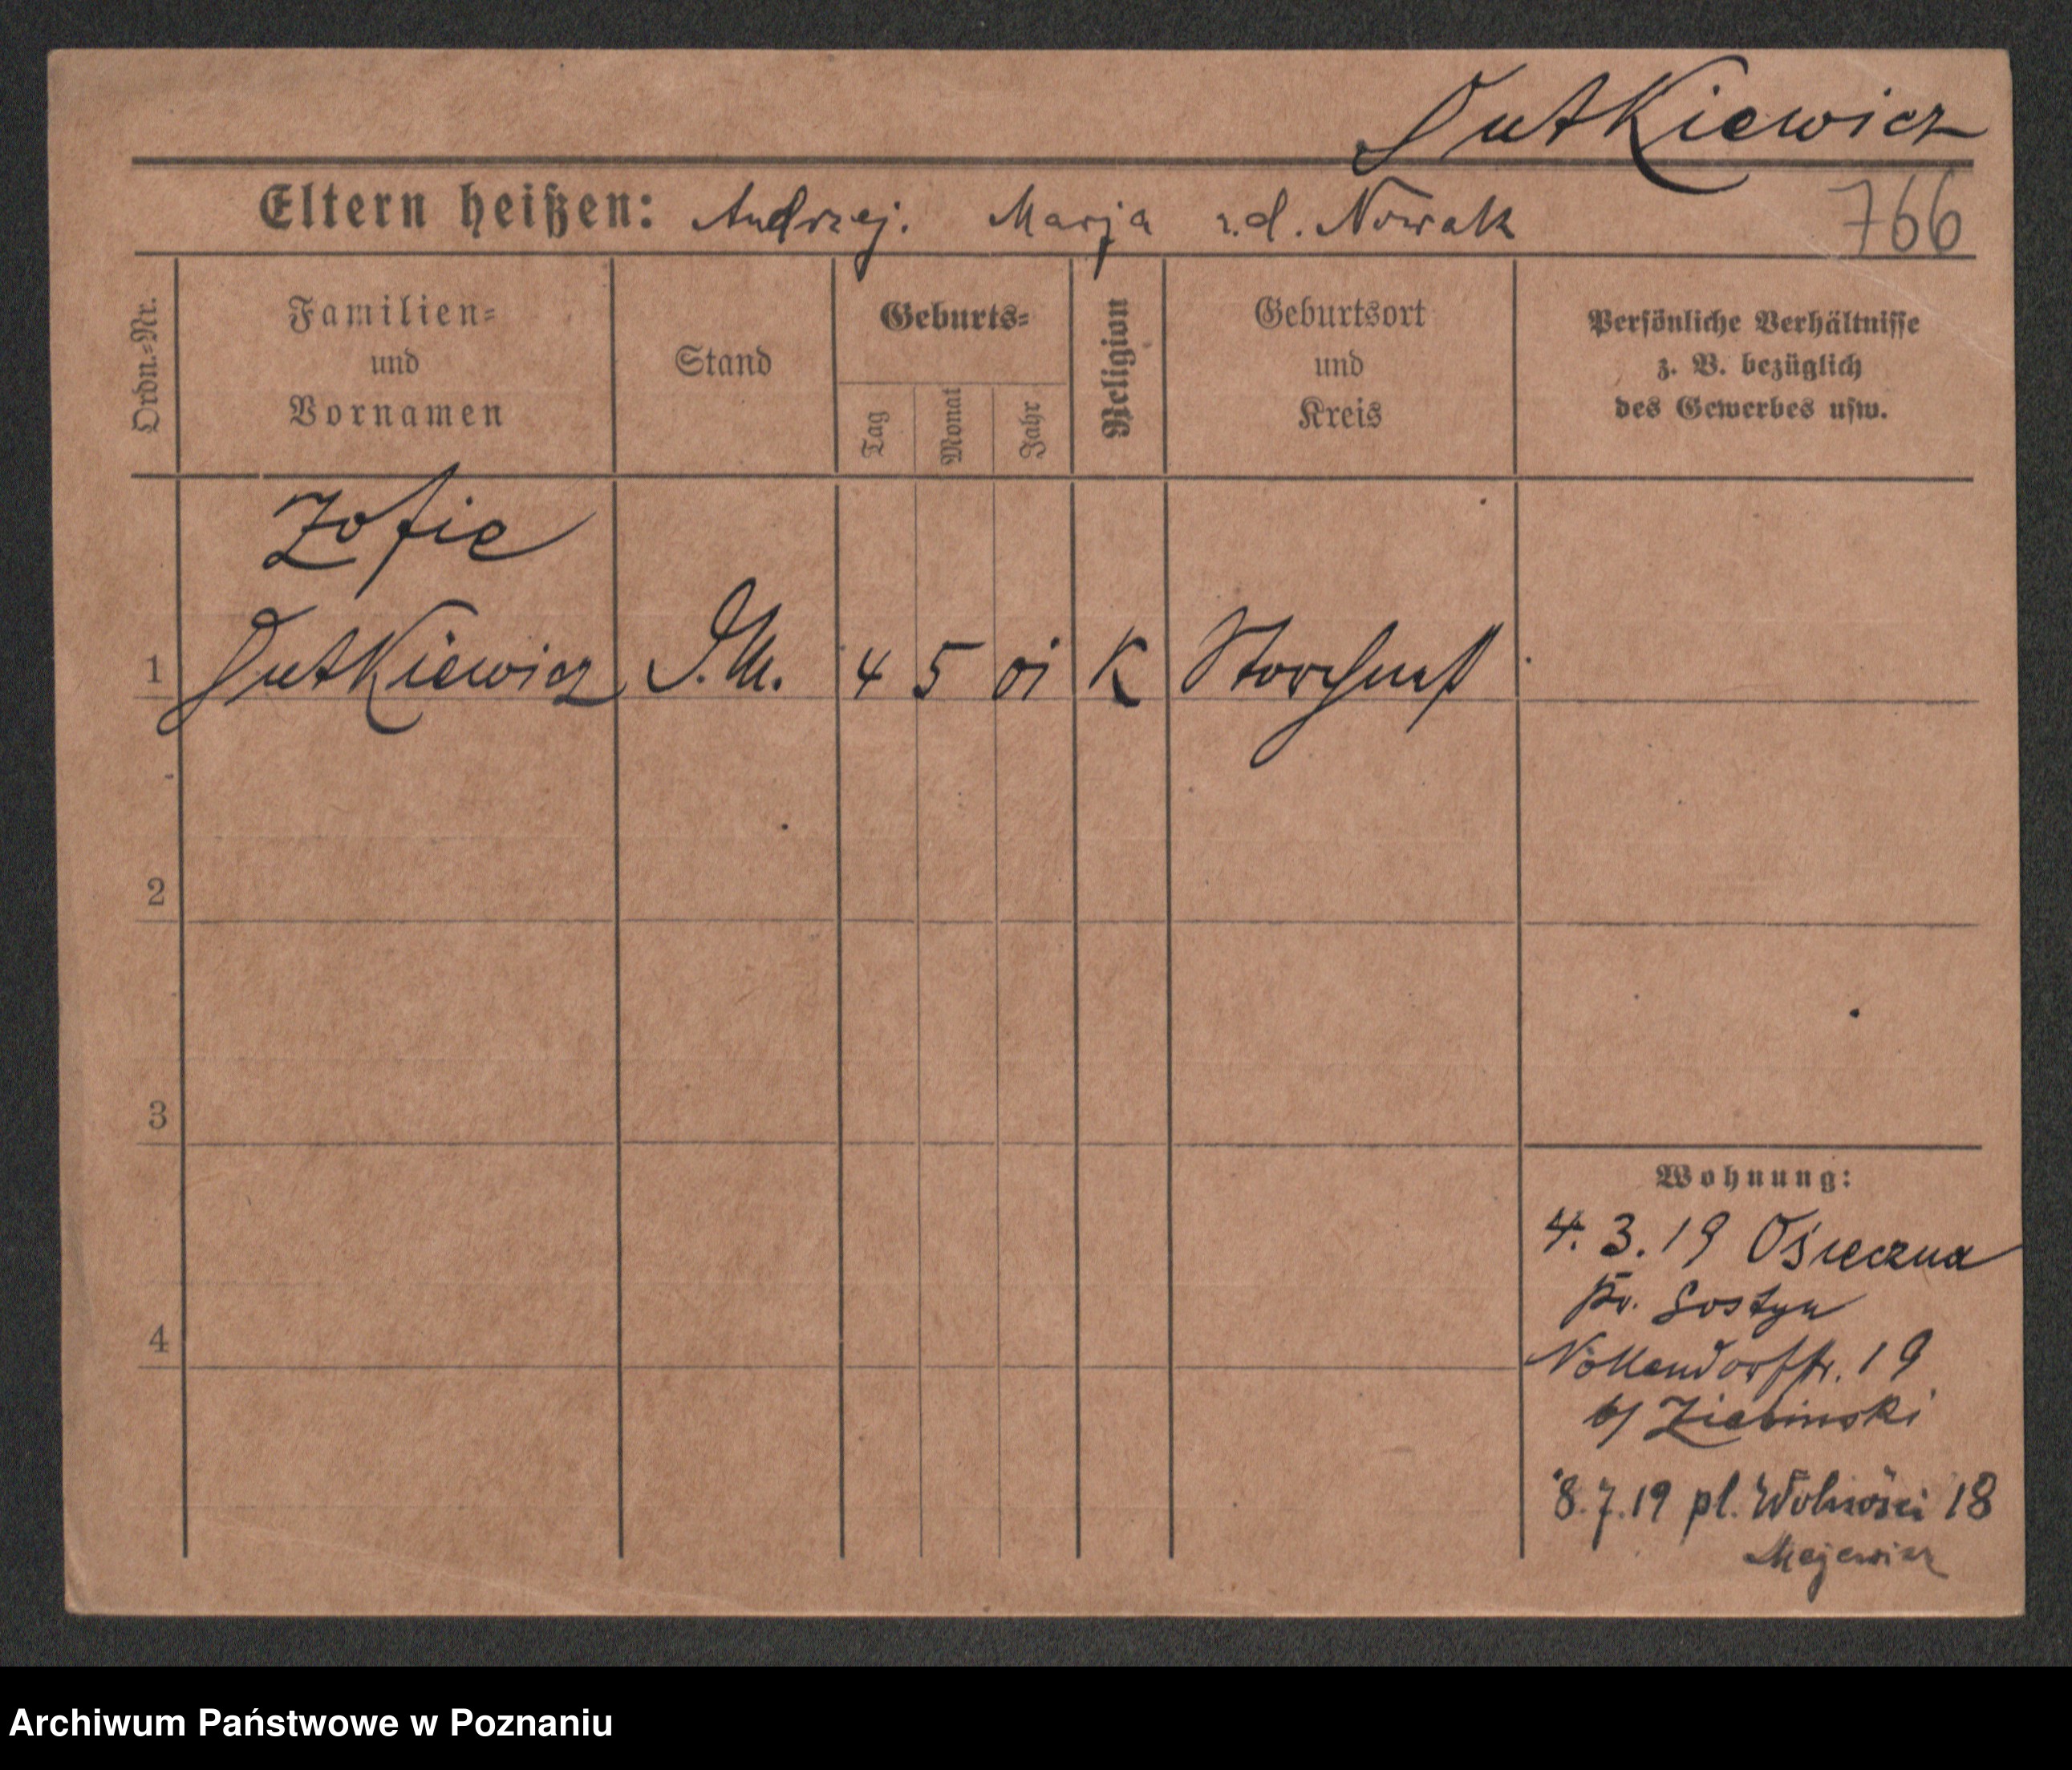 Dutkiewicz
Eltern heißen: Andrzej. Marja z.d. Nowak 766
Ordn.=Nr.
Familien=
und
Vornamen
Stand
Geburts=
Tag
Monat
Jahr
Religion
Geburtsort
und
Kreis
Persönliche Verhältnisse
z. B. bezüglich
des Gewerbes usw.
Zofie
1 Dutkiewicz D.M. 4 5 01 K Storchnest
2
3
4
Wohnung:
4.3.19 Ośieczna
Kr. Gostyn
Nollendorfstr. 19
b/ Ziebinski
8.7.19 pl. Wolności 18
Majewicz
Archiwum Państwowe w Poznaniu